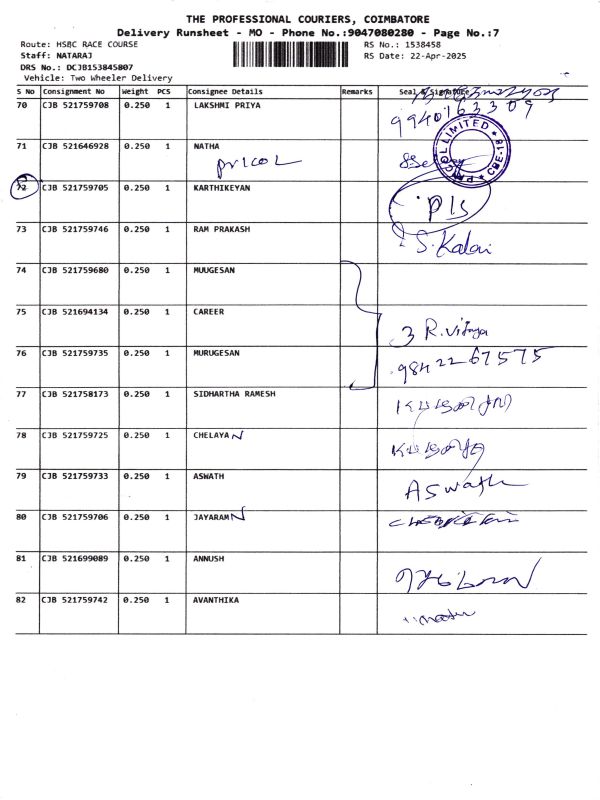 THE PROFESSIONAL COURIERS, COIMBATORE
Delivery Runsheet - MO - Phone No.:9047080280 - Page No.:7
Route: HSBC RACE COURSE RS No.: 1538458
Staff: NATARAJ RS Date: 22-Apr-2025
DRS No.: DCJB153845807
Vehicle: Two Wheeler Delivery
S No Consignment No Weight PCS Consignee Details Remarks Seal & Signature
70 CJB 521759708 0.250 1 LAKSHMI PRIYA
9940163309
71 CJB 521646928 0.250 1 NATHA
pricol
PRICOL LIMITED ★ CBE-18 ★
72 CJB 521759705 0.250 1 KARTHIKEYAN
73 CJB 521759746 0.250 1 RAM PRAKASH S. Kalai
74 CJB 521759680 0.250 1 MUUGESAN
75 CJB 521694134 0.250 1 CAREER 3 R. Vijaya
76 CJB 521759735 0.250 1 MURUGESAN 9842267575
77 CJB 521758173 0.250 1 SIDHARTHA RAMESH
78 CJB 521759725 0.250 1 CHELAYAN
79 CJB 521759733 0.250 1 ASWATH Aswath
80 CJB 521759706 0.250 1 JAYARAMN
81 CJB 521699089 0.250 1 ANNUSH
82 CJB 521759742 0.250 1 AVANTHIKA